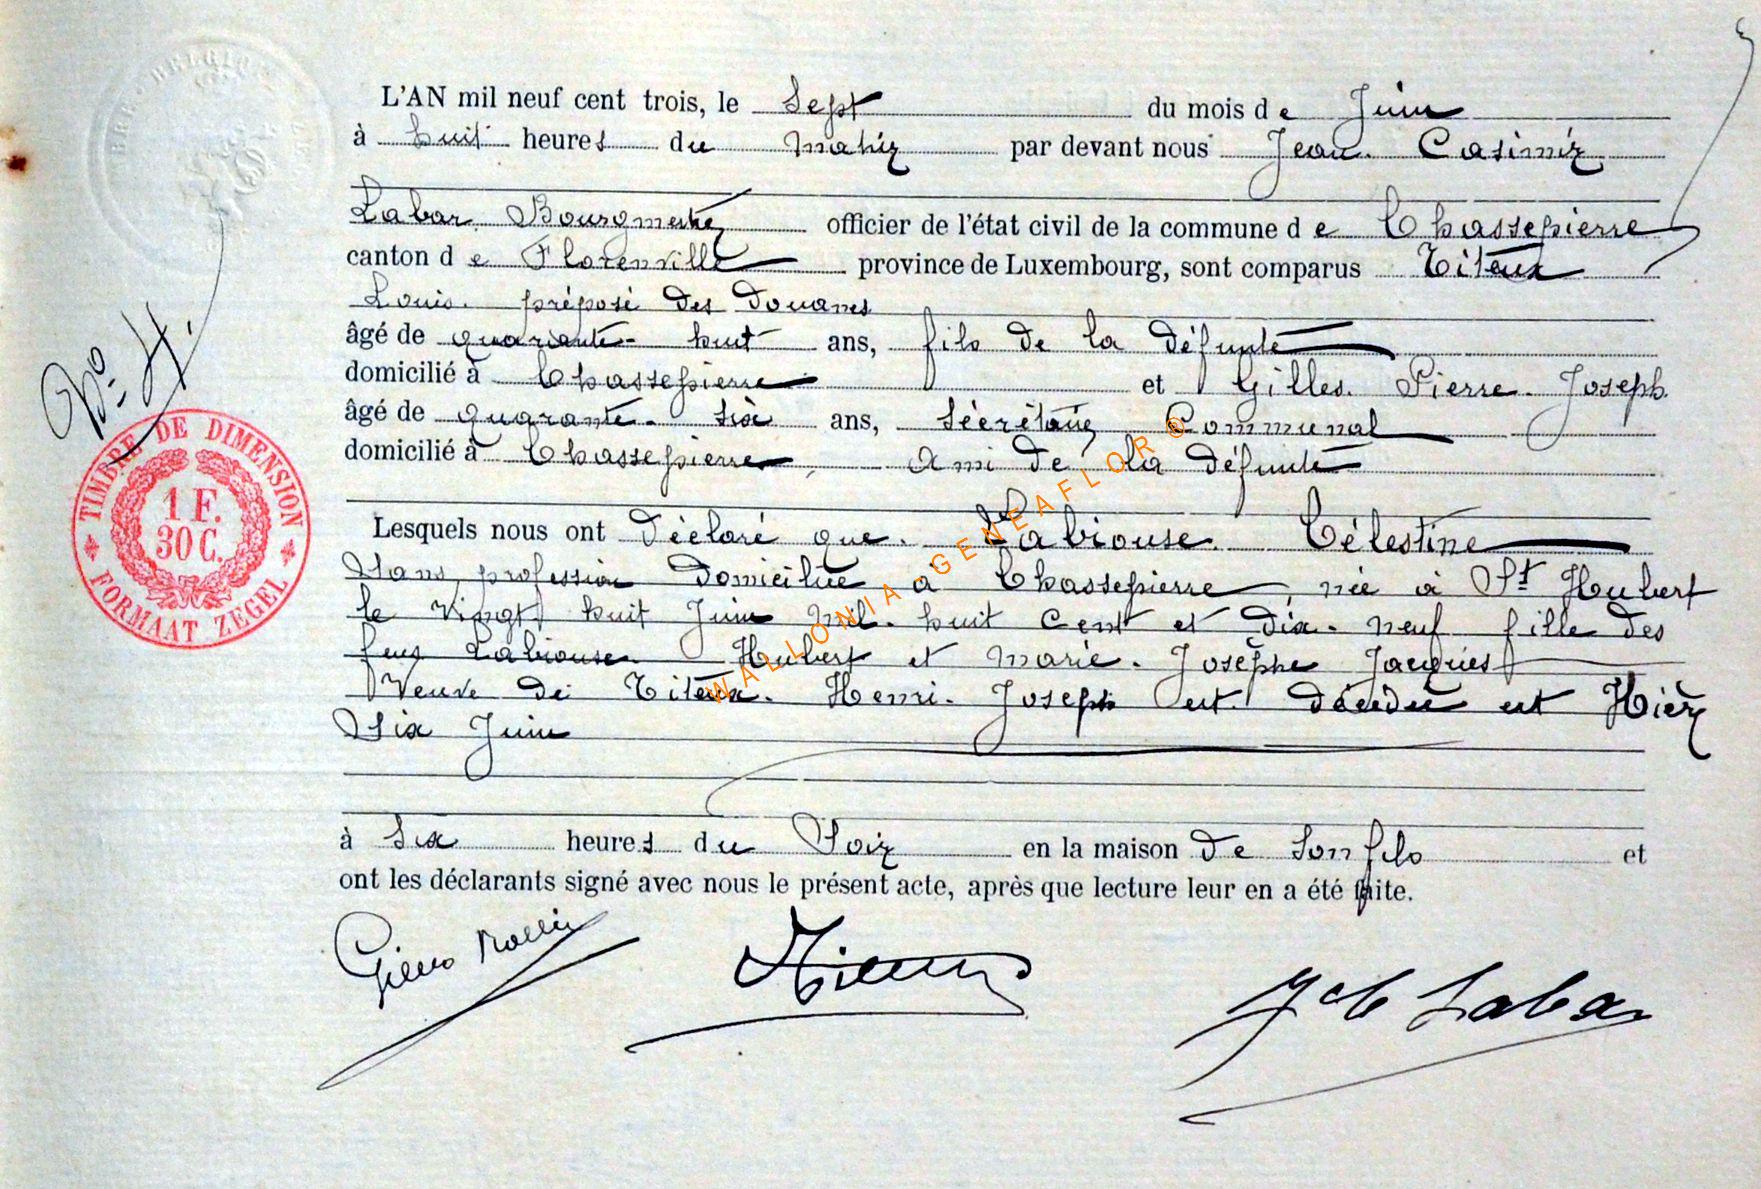 BELGIQUE
L'AN mil neuf cent trois, le Sept du mois de Juin
à huit heures du Matin par devant nous Jean. Casimir
Labar Bourgmestre officier de l'état civil de la commune de Chassepierre
canton de Florenville province de Luxembourg, sont comparus Titeux
Louis. préposé des Douanes
âgé de quarante-huit ans, fils de la défunte
domicilié à Chassepierre et Gilles. Pierre. Joseph
âgé de quarante-six ans, Sécrétaire Communal
domicilié à Chassepierre, Ami de la défunte
Lesquels nous ont Déclaré que. Labiouse. Célestine
Sans profession domiciliée à Chassepierre, née à St Hubert
le vingt huit Juin Mil. huit Cent et dix-neuf fille des
feus Labiouse. Hubert et Marie. Josèphe Jacques
Veuve de Titeux. Henri. Joseph est. décédée est Hier
Six Juin
à Six heures du Soir en la maison de Son fils et
ont les déclarants signé avec nous le présent acte, après que lecture leur en a été faite.
Gilles Titeux JCb Labar
No. 4.
TIMBRE DE DIMENSION
1 F.
30 C.
FORMAAT ZEGEL
WALLONIA-GENEAFLOR ©